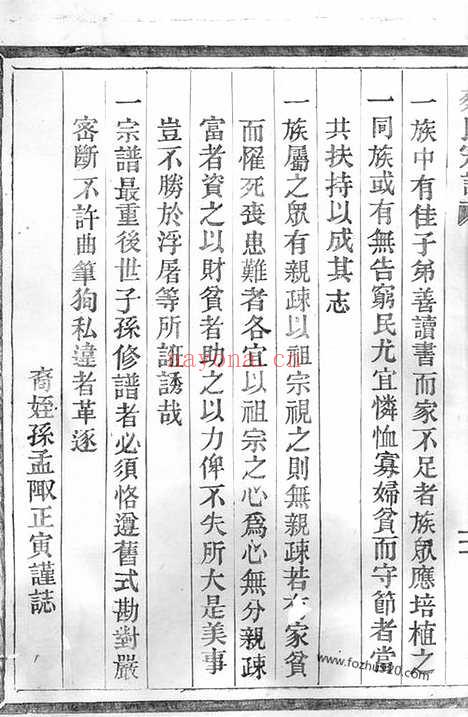 一族中有佳子弟善讀書而家不足者族眾應培植之
一同族或有無告窮民尤宜憐恤寡婦貧而守節者當
共扶持以成其志
一族屬之眾有親疎以祖宗視之則無親疎若家貧
而罹死喪患難者各宜以祖宗之心爲心無分親疎
富者資之以財貧者助之以力俾不失所大是美事
豈不勝於浮屠等所誘哉
一宗譜最重後世子孫修譜者必須恪遵舊式勘對嚴
密斷不許曲筆狥私違者革逐
裔姪孫孟陬正寅謹誌
hayonai.cn
www.fozhu920.com